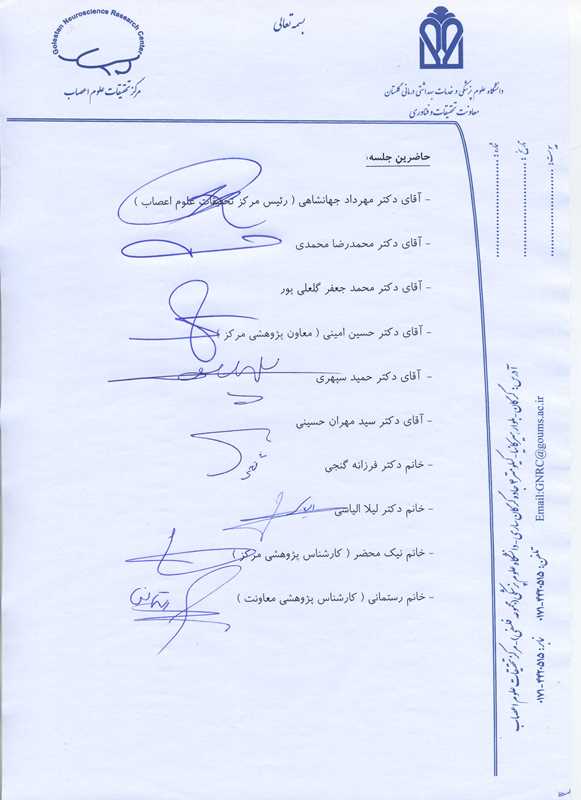 بسمه تعالی
Golestan Neuroscience Research Center
مرکز تحقیقات علوم اعصاب
دانشگاه علوم پزشکی و خدمات بهداشتی درمانی گلستان
معاونت تحقیقات و فناوری
شماره:
تاریخ:
پیوست:
حاضرین جلسه:
- آقای دکتر مهرداد جهانشاهی ( رئیس مرکز تحقیقات علوم اعصاب )
- آقای دکتر محمدرضا محمدی
- آقای دکتر محمد جعفر گلعلی پور
- آقای دکتر حسین امینی ( معاون پژوهشی مرکز )
- آقای دکتر حمید سپهری
- آقای دکتر سید مهران حسینی
- خانم دکتر فرزانه گنجی
- خانم دکتر لیلا الیاسی
- خانم نیک محضر ( کارشناس پژوهشی مرکز )
- خانم رستمانی ( کارشناس پژوهشی معاونت )
آدرس: گرگان - بلوار هیرکانیا - کیلومتر ۲ جاده گرگان ساری - دانشگاه علوم پزشکی (مجموعه فلسفی) - مرکز تحقیقات علوم اعصاب
تلفن: ۴۴۲۰۵۱۵-۰۱۷۱ نمابر: ۴۴۲۰۵۱۵-۰۱۷۱
Email:GNRC@goums.ac.ir